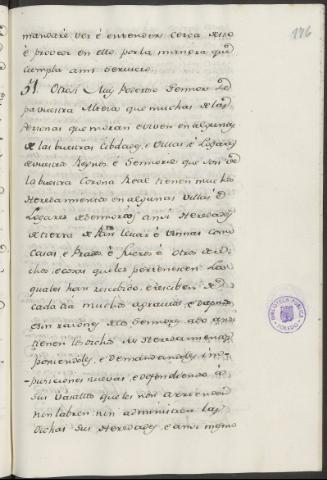 176
mandare ver é entender cerca de ello
é proveer en ello por la manera que
cumpla a mi servicio.
51. Otrosi Muy Poderoso Sennor
á vuestra Alteza que muchas de las
Personas que moran é viven en algunas
de las buestras Cibdades, é Villas é Logares
de vuestros Reynos é Sennorios que son de
la buestra Corona Real tienen muchos
Heredamientos en algunas Villas é
Logares de Sennorios, ansi Heredades
de tierra de Pan levar é vinnas como
Casas, é Prados é fueros é otros
chos, é cosas que les pertenescen. Las
quales han rescibido é resciben de
cada dia muchos agravios é
é sin razones de los Sennores
tienen los dichos sus Heredamientos
poniendoles, é demandandoles im-
-pusiciones nuevas, é defendiendo á
sus Vasallos que les non arrienden
nin labren nin administren las
dichas sus Heredades é ansi mesmo
BIBLIOTECA PUBLICA
TOLEDO